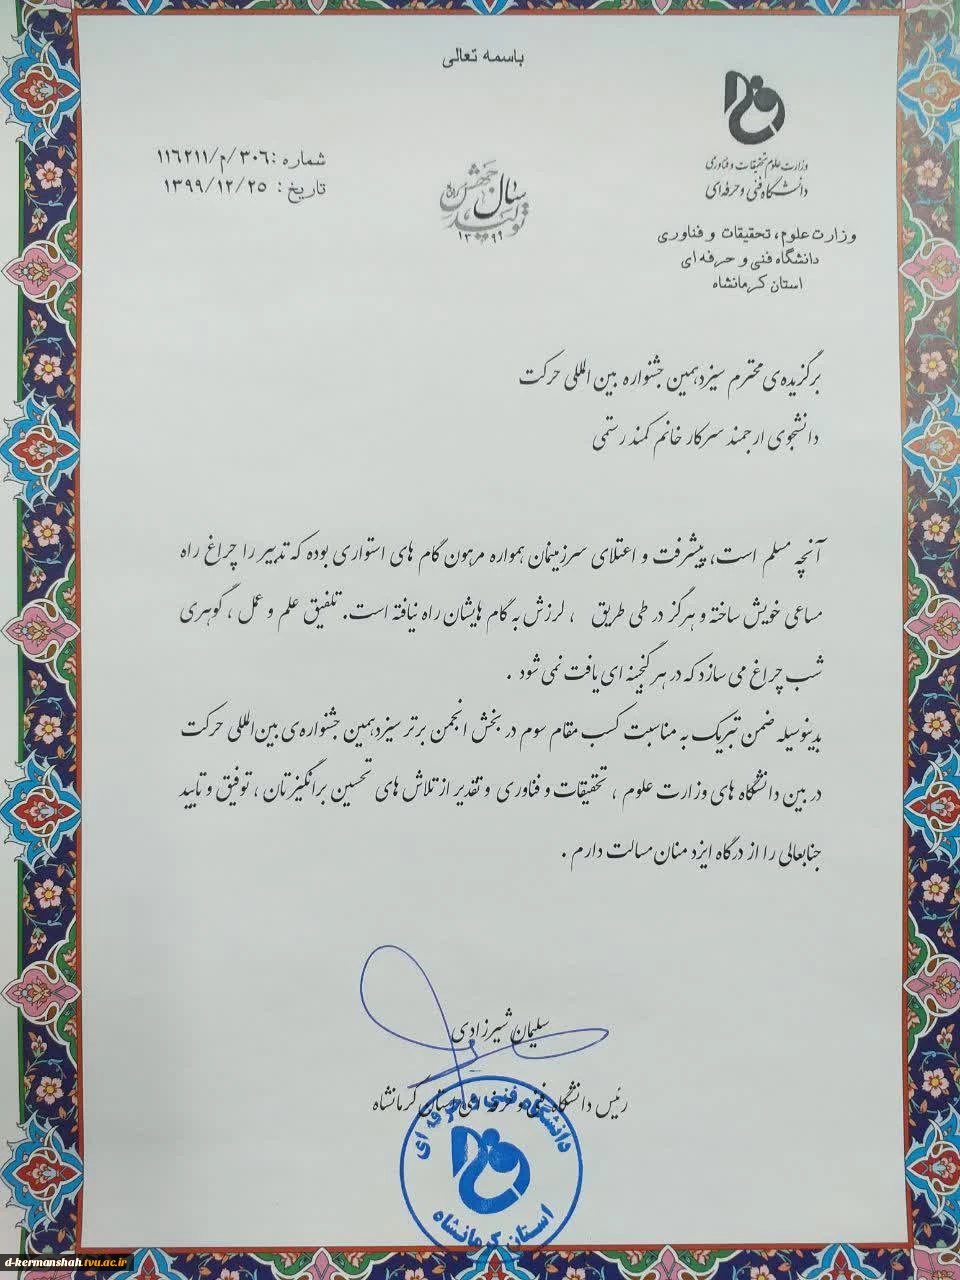 باسمه تعالی
وزارت علوم تحقیقات و فناوری
دانشگاه فنی و حرفه‌ای
وزارت علوم، تحقیقات و فناوری
دانشگاه فنی و حرفه ای
استان کرمانشاه
شماره :۱۱۶۲۱۱/م/۳۰۶
تاریخ: ۱۳۹۹/۱۲/۲۵
سال جهش تولید
۱۳۹۹
برگزیده‌ی محترم سیزدهمین جشنواره بین المللی حرکت
دانشجوی ارجمند سرکار خانم کمند رستمی
آنچه مسلم است، پیشرفت و اعتلای سرزمینمان همواره مرهون گام های استواری بوده که تدبیر را چراغ راه
مساعی خویش ساخته و هرگز در طی طریق ، لرزش به گام هایشان راه نیافته است. تلفیق علم و عمل ، گوهری
شب چراغ می سازد که در هر گنجینه ای یافت نمی شود .
بدینوسیله ضمن تبریک به مناسبت کسب مقام سوم در بخش انجمن برتر سیزدهمین جشنواره‌ی بین‌المللی حرکت
در بین دانشگاه های وزارت علوم ، تحقیقات و فناوری و تقدیر از تلاش های تحسین برانگیزتان ، توفیق و تایید
جنابعالی را از درگاه ایزد منان مسالت دارم .
سلیمان شیرزادی
رئیس دانشگاه فنی و حرفه ای استان کرمانشاه
دانشگاه فنی و حرفه ای
استان کرمانشاه
d-kermanshah.tvu.ac.ir